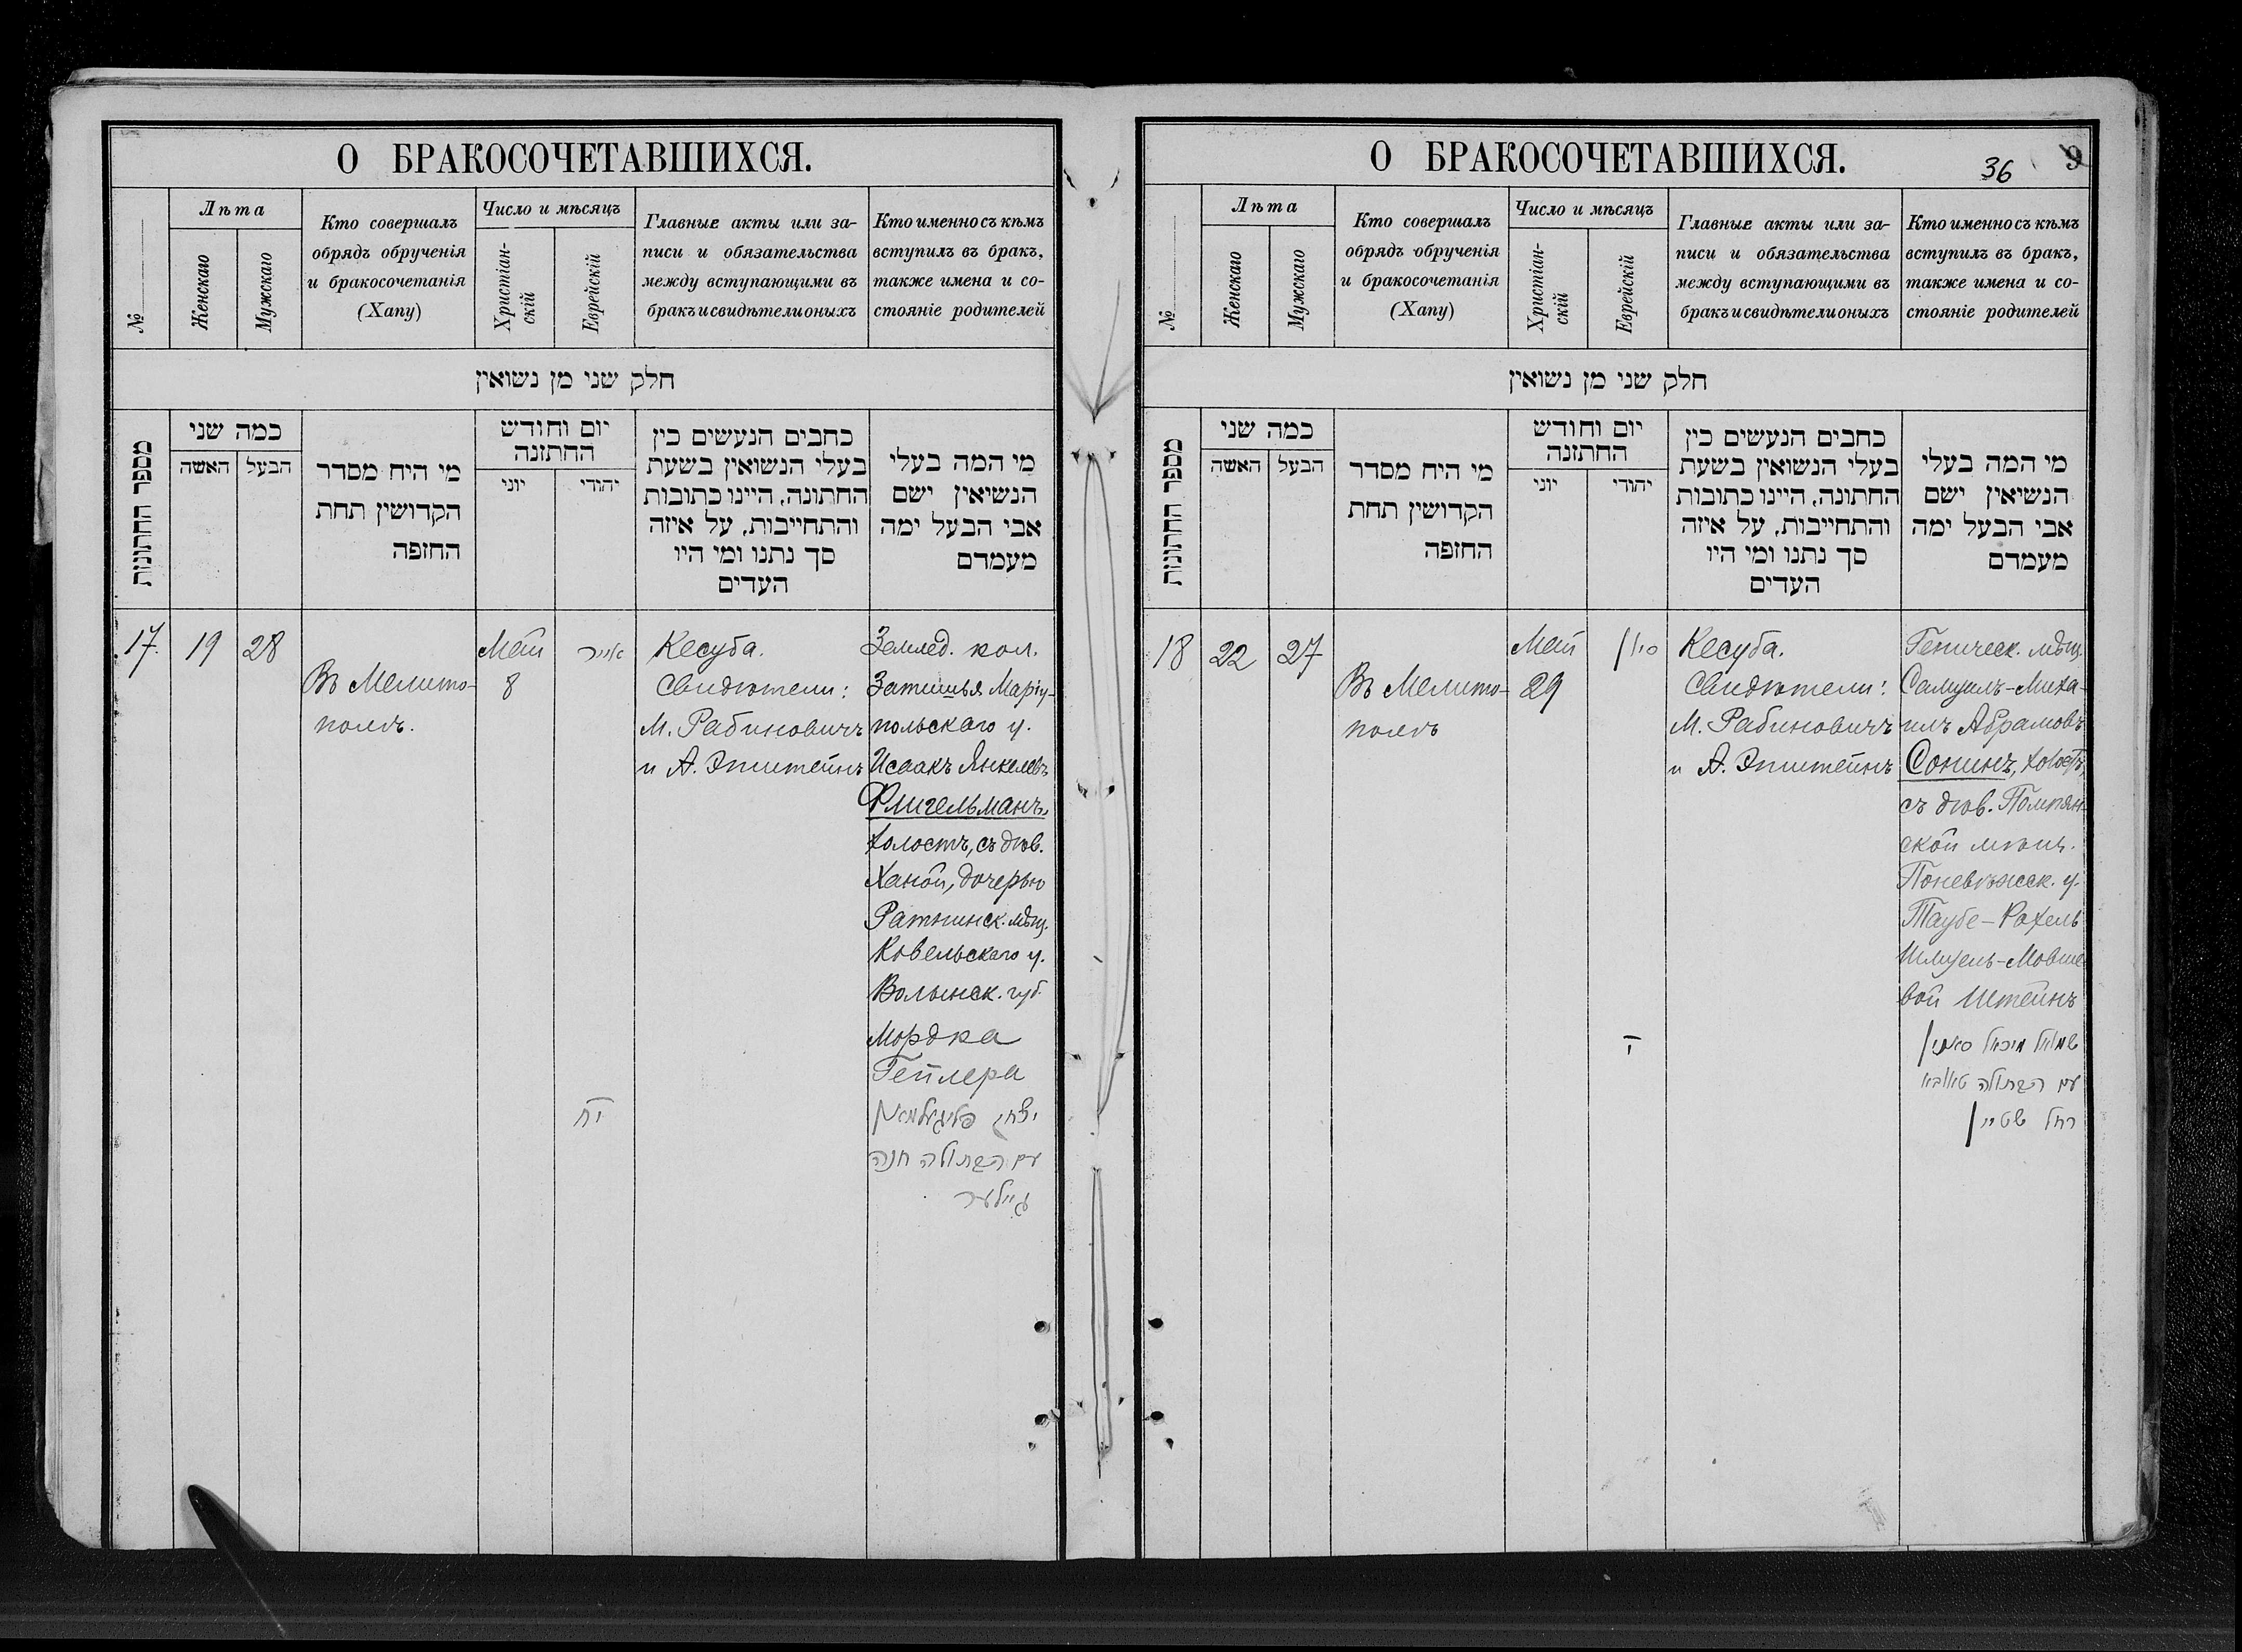 О БРАКОСОЧЕТАВШИХСЯ.
№
Лѣта
Женскаго
Мужскаго
Кто совершалъ
обрядъ обрученія
и бракосочетанія
(Хапу)
Число и мѣсяцъ
Христіан-
скій
Еврейскій
Главные акты или за-
писи и обязательства
между вступающими въ
бракъ и свидѣтели оныхъ
Кто именно съ кѣмъ
вступилъ въ бракъ,
также имена и со-
стояніе родителей
חלק שני מן נשואין
מספר החתונות
כמה שני
האשה
הבעל
מי היח מסדר
הקדושין תחת
החזפה
יום וחודש
החתזנה
יוני
יהודי
כחבים הנעשים כין
בעלי הנשואין בשעת
החתונה, היינו כתובות
והתחייבות, על איזה
סך נתנו ומי היו
העדים
מי המה בעלי
הנשיאין ישם
אבי הבעל ימה
מעמדם
17.
19
28
Въ Мелито-
полѣ.
Май
8
אייר
יח
Кесуба.
Свидѣтели:
М. Рабиновичъ
и А. Эпштейнъ
Землед. кол.
Затишья Маріу-
польскаго у.
Исаакъ Янкелевъ
Флигельманъ,
холостъ, съ дѣв.
Ханой, дочерью
Ратнинск. мѣщ.
Ковельскаго у.
Волынск. губ.
Мордка
Гейлера
יצחק פליגעלמאן
עם הבתולה חנה
גיילער
О БРАКОСОЧЕТАВШИХСЯ.
36
9
№
Лѣта
Женскаго
Мужскаго
Кто совершалъ
обрядъ обрученія
и бракосочетанія
(Хапу)
Число и мѣсяцъ
Христіан-
скій
Еврейскій
Главные акты или за-
писи и обязательства
между вступающими въ
бракъ и свидѣтели оныхъ
Кто именно съ кѣмъ
вступилъ въ бракъ,
также имена и со-
стояніе родителей
חלק שני מן נשואין
מספר החתונות
כמה שני
האשה
הבעל
מי היח מסדר
הקדושין תחת
החזפה
יום וחודש
החתזנה
יוני
יהודי
כחבים הנעשים כין
בעלי הנשואין בשעת
החתונה, היינו כתובות
והתחייבות, על איזה
סך נתנו ומי היו
העדים
מי המה בעלי
הנשיאין ישם
אבי הבעל ימה
מעמדם
18
22
27
Въ Мелито-
полѣ
Май
29
סיון
ה
Кесуба.
Свидѣтели:
М. Рабиновичъ
и А. Эпштейнъ
Геническ. мѣщ.
Самуилъ-Миха-
илъ Абрамовъ
Сонинъ, холостъ,
съ дѣв. Помпян-
ской мѣщ.
Поневѣжск. у.
Таубе-Рохель
Шмуель-Мовше-
вой Штейнъ
שמואל מיכאל סאנין
עם הבתולה טאובא
רחל שטיין